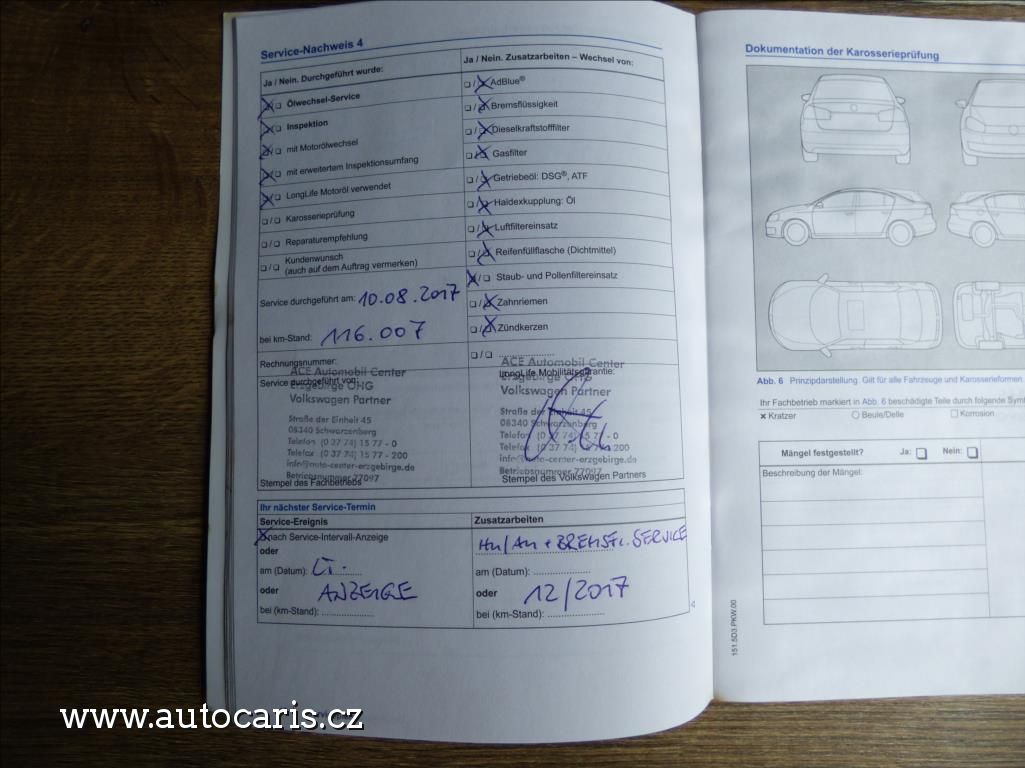 Service-Nachweis 4
Ja / Nein. Durchgeführt wurde:
☒/☐ Ölwechsel-Service
☒/☐ Inspektion
☒/☐ mit Motorölwechsel
☒/☐ mit erweitertem Inspektionsumfang
☒/☐ LongLife Motoröl verwendet
☐/☐ Karosserieprüfung
☐/☐ Reparaturempfehlung
☐/☐ Kundenwunsch
(auch auf dem Auftrag vermerken)
Service durchgeführt am: 10.08.2017
bei km-Stand: 116.007
Rechnungsnummer:
Service durchgeführt von:
ACE Automobil Center
Erzgebirge OHG
Volkswagen Partner
Straße der Einheit 45
08340 Schwarzenberg
Telefon (0 37 74) 15 77 - 0
Telefax (0 37 74) 15 77 - 200
info@auto-center-erzgebirge.de
Betriebsnummer 77097
Stempel des Fachbetriebs
Ja / Nein. Zusatzarbeiten – Wechsel von:
☐/☒ AdBlue®
☐/☒ Bremsflüssigkeit
☐/☒ Dieselkraftstofffilter
☐/☒ Gasfilter
☐/☒ Getriebeöl: DSG®, ATF
☐/☒ Haldexkupplung: Öl
☐/☒ Luftfiltereinsatz
☐/☒ Reifenfüllflasche (Dichtmittel)
☒/☐ Staub- und Pollenfiltereinsatz
☐/☒ Zahnriemen
☐/☒ Zündkerzen
☐/☐ ....................
LongLife Mobilitätsgarantie:
ACE Automobil Center
Erzgebirge OHG
Volkswagen Partner
Straße der Einheit 45
08340 Schwarzenberg
Telefon (0 37 74) 15 77 - 0
Telefax (0 37 74) 15 77 - 200
info@auto-center-erzgebirge.de
Betriebsnummer 77097
Stempel des Volkswagen Partners
Ihr nächster Service-Termin
Service-Ereignis
☒ nach Service-Intervall-Anzeige
oder
am (Datum): LT.
oder ANZEIGE
bei (km-Stand): ....................
Zusatzarbeiten
HU/AU + BREMSFL. SERVICE
am (Datum): ....................
oder 12/2017
bei (km-Stand): ....................
Dokumentation der Karosserieprüfung
Abb. 6 Prinzipdarstellung. Gilt für alle Fahrzeuge und Karosserieformen
Ihr Fachbetrieb markiert in Abb. 6 beschädigte Teile durch folgende
× Kratzer ○ Beule/Delle ☐ Korrosion
Mängel festgestellt? Ja: ☐ Nein: ☐
Beschreibung der Mängel:
151.5D3.PKW.00
www.autocaris.cz